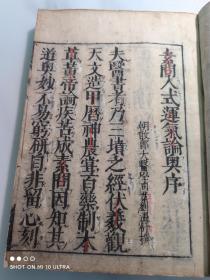 素問入式運氣論奧序
朝散郎太醫學司業劉溫舒撰
夫醫書者乃三墳之經伏羲觀
天文造甲曆神農嘗百藥制本
草黃帝論疾苦成素問因知其
道奧妙不易窮研自非留心刻
SHOT ON MI 10 ULTRA